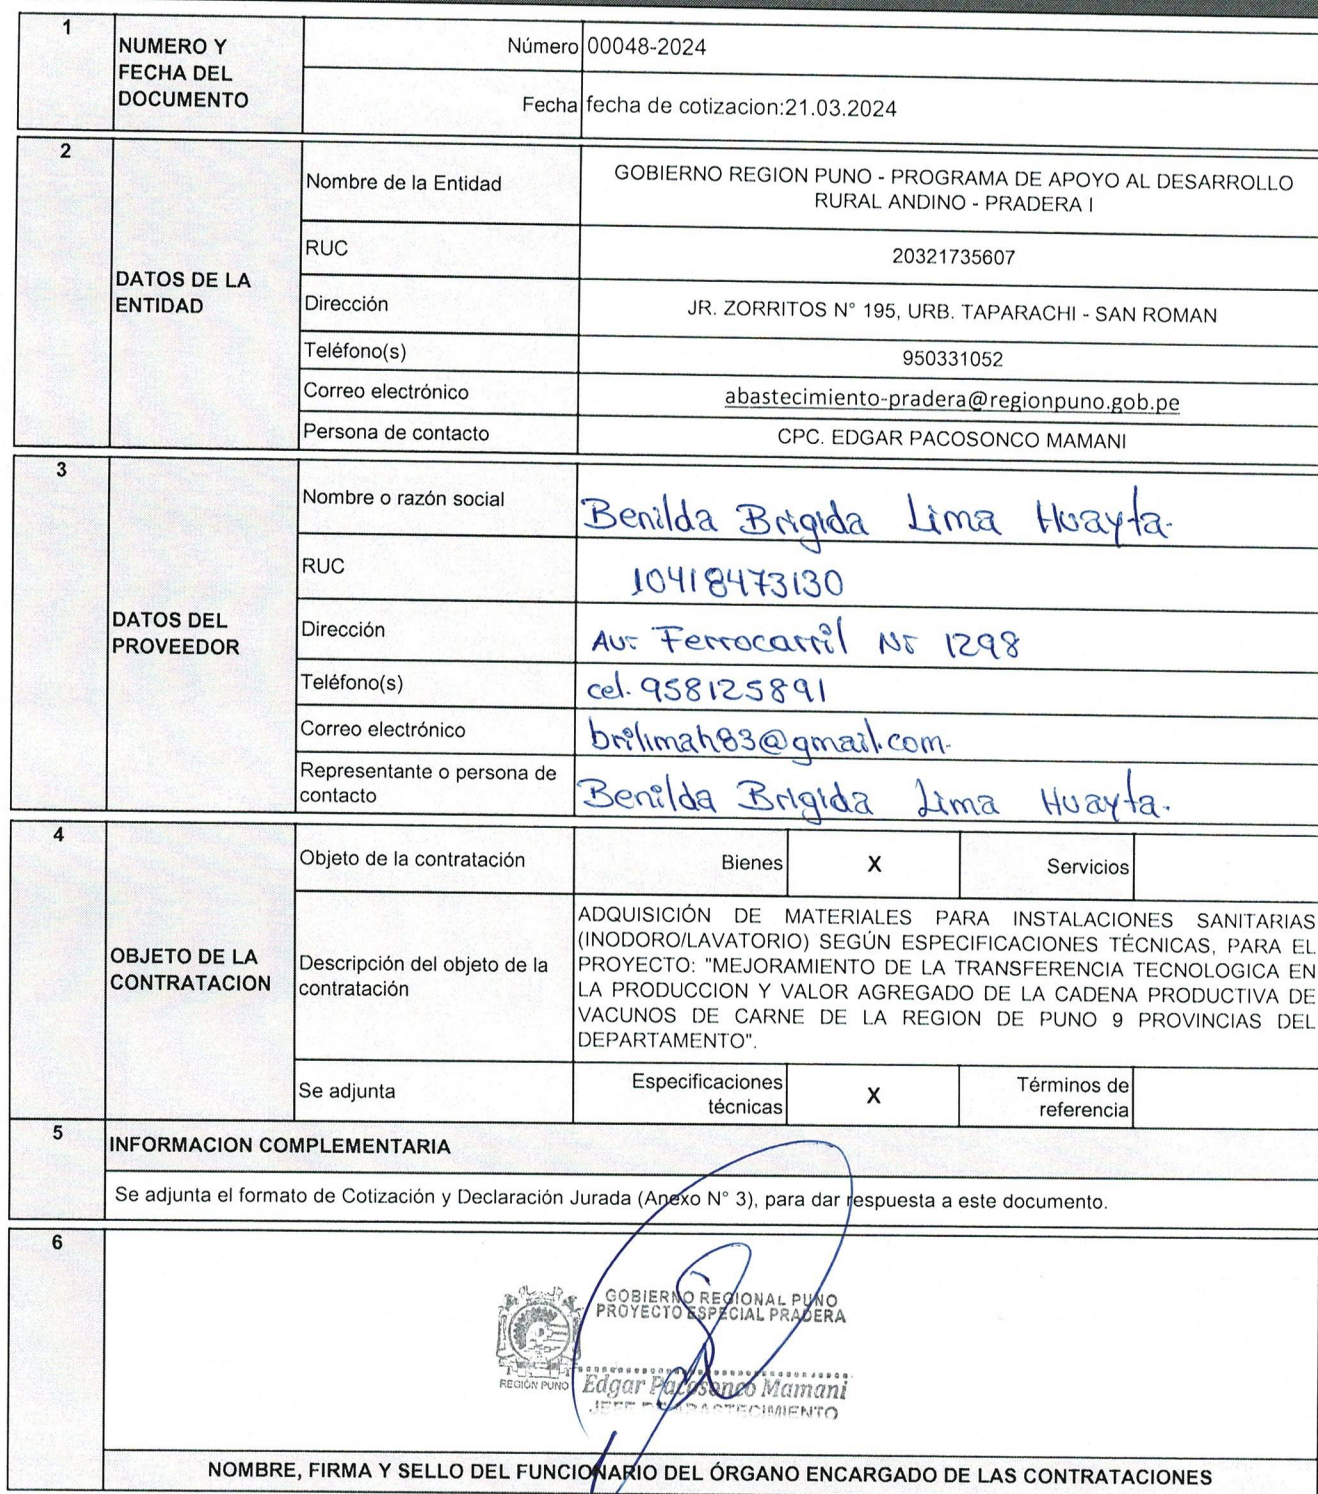 1
NUMERO Y
FECHA DEL
DOCUMENTO
Número 00048-2024
Fecha fecha de cotizacion:21.03.2024
2
DATOS DE LA
ENTIDAD
Nombre de la Entidad
GOBIERNO REGION PUNO - PROGRAMA DE APOYO AL DESARROLLO
RURAL ANDINO - PRADERA I
RUC 20321735607
Dirección JR. ZORRITOS N° 195, URB. TAPARACHI - SAN ROMAN
Teléfono(s) 950331052
Correo electrónico abastecimiento-pradera@regionpuno.gob.pe
Persona de contacto CPC. EDGAR PACOSONCO MAMANI
3
DATOS DEL
PROVEEDOR
Nombre o razón social Benilda Brigida Lima Huayta.
RUC 10418473130
Dirección Av. Ferrocarril Nº 1298
Teléfono(s) cel. 958125891
Correo electrónico brilimah83@gmail.com.
Representante o persona de
contacto
Benilda Brigida Lima Huayta.
4
OBJETO DE LA
CONTRATACION
Objeto de la contratación Bienes X Servicios
Descripción del objeto de la
contratación
ADQUISICIÓN DE MATERIALES PARA INSTALACIONES SANITARIAS
(INODORO/LAVATORIO) SEGÚN ESPECIFICACIONES TÉCNICAS, PARA EL
PROYECTO: "MEJORAMIENTO DE LA TRANSFERENCIA TECNOLOGICA EN
LA PRODUCCION Y VALOR AGREGADO DE LA CADENA PRODUCTIVA DE
VACUNOS DE CARNE DE LA REGION DE PUNO 9 PROVINCIAS DEL
DEPARTAMENTO".
Se adjunta
Especificaciones
técnicas
X
Términos de
referencia
5
INFORMACION COMPLEMENTARIA
Se adjunta el formato de Cotización y Declaración Jurada (Anexo N° 3), para dar respuesta a este documento.
6
GOBIERNO REGIONAL PUNO
PROYECTO ESPECIAL PRADERA
REGIÓN PUNO
Edgar Pacosonco Mamani
JEFE DE ABASTECIMIENTO
NOMBRE, FIRMA Y SELLO DEL FUNCIONARIO DEL ÓRGANO ENCARGADO DE LAS CONTRATACIONES